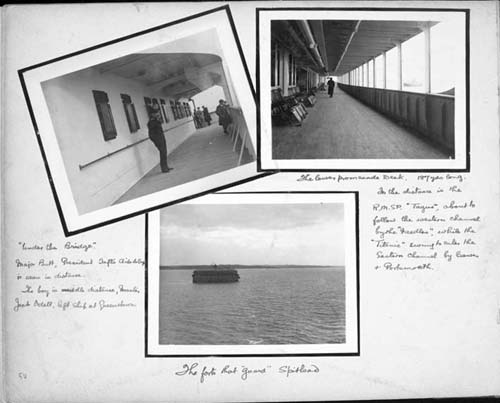 The lower promenade Deck. 187 yds long.
In the distance is the
R.M.S.P. "Tagus", about to
follow the western channel
by the "Needles", while the
"Titanic" swung to enter the
Eastern channel by Cowes
& Portsmouth.
"Under the Bridge"
Major Butt, President Taft's Aide
is seen in distance.
The boy in middle distance,
Jack Odell, left ship at Queenstown
The forts that "guard" Spithead